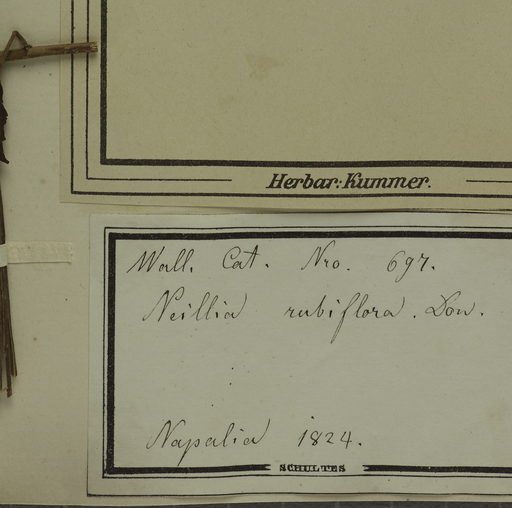 Herbar: Kummer.
Wall. Cat. Nro. 697.
Neillia rubiflora. Don.
Napalia 1824.
SCHULTES